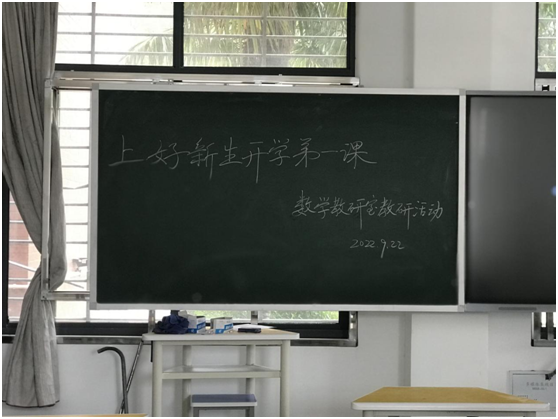 上好新生开学第一课
数学教研室教研活动
2022.9.22